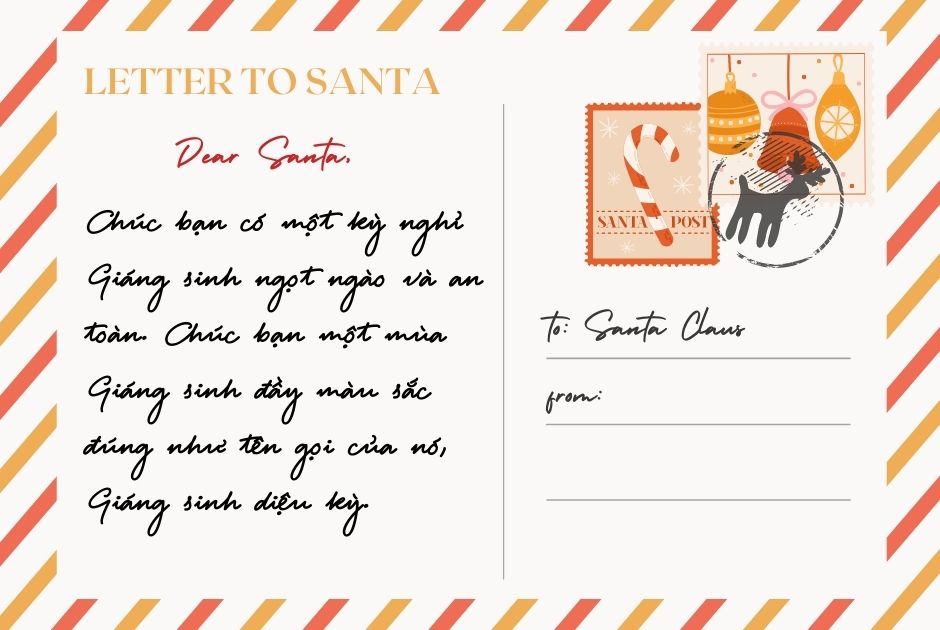 LETTER TO SANTA
Dear Santa,
Chúc bạn có một kỳ nghỉ
Giáng sinh ngọt ngào và an
toàn. Chúc bạn một mùa
Giáng sinh đầy màu sắc
đúng như tên gọi của nó,
Giáng sinh diệu kỳ.
SANTA POST
to: Santa Claus
from: